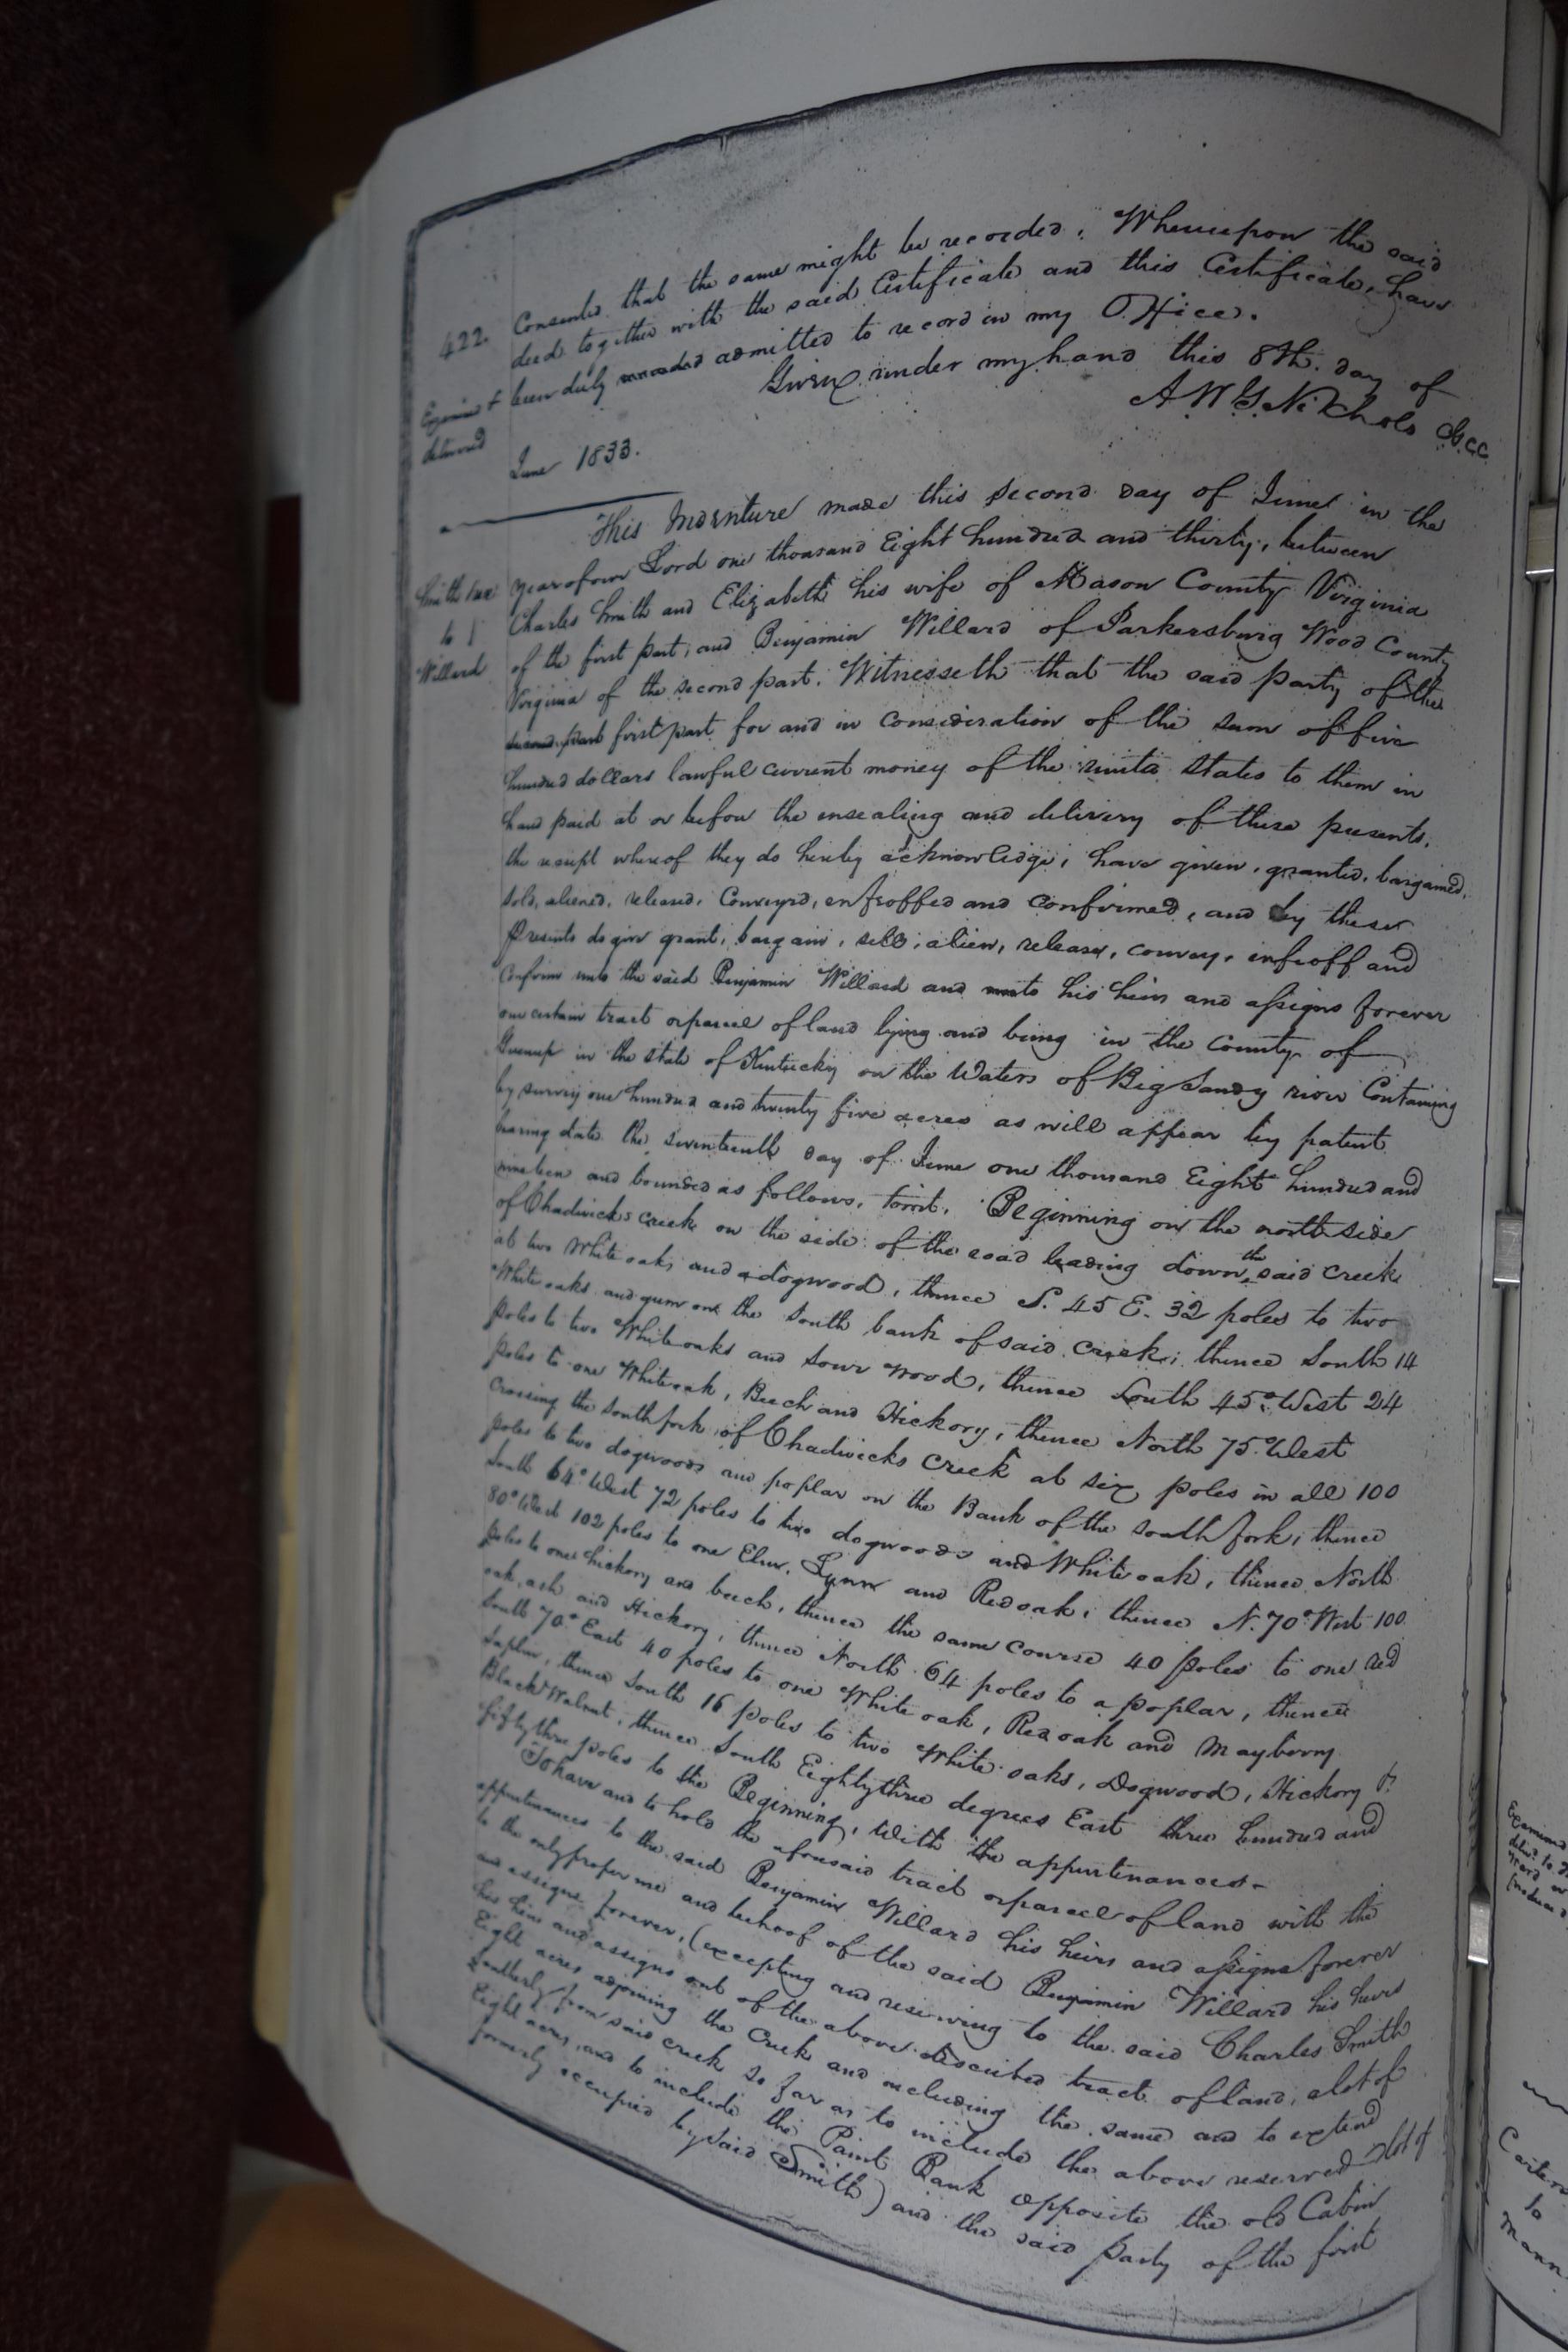 422.
Consented that the same might be recorded. Whereupon the said
deed together with the said Certificate and this Certificate, have
Examined & been duly recorded admitted to record in my Office.
delivered
Given under my hand this 8th. day of
June 1833.
A W G Nichols
This Indenture made this second day of June in the
year of our Lord one thousand Eight hundred and thirty, between
Smith & ux
to
Willard
Charles Smith and Elizabeth his wife of Mason County Virginia
of the first part, and Benjamin Willard of Parkersburg Wood County
Virginia of the second part. Witnesseth that the said party of the
second part first part for and in consideration of the sum of five
hundred dollars lawful current money of the united States to them in
hand paid at or before the ensealing and delivery of these presents,
the receipt whereof they do hereby acknowledge, have given, granted, bargained,
sold, aliened, released, Conveyed, enfeoffed and confirmed, and by these
Presents do give grant, bargain, sell, alien, release, convey, enfeoff and
confirm unto the said Benjamin Willard and to his heirs and assigns forever
one certain tract or parcel of land lying and being in the County of
Greenup in the state of Kentucky on the Waters of Big Sandy river Containing
by survey one hundred and twenty five acres as will appear by patent
bearing date the seventeenth day of June one thousand Eight hundred and
nineteen and bounded as follows, towit. Beginning on the north side
of Chadwicks creek on the side of the road leading down the said creek
at two White oaks and a dogwood, thence S. 45 E. 32 poles to two
White oaks and gum on the south bank of said creek; thence South 14
poles to two White oaks and Sour wood, thence South 45° West 24
poles to one White oak, Beech and Hickory, thence North 75° West
crossing the south fork of Chadwicks Creek at six poles in all 100
poles to two dogwoods and poplar on the Bank of the south fork; thence
South 64° West 72 poles to two dogwoods and White oak, thence North
80° West 102 poles to one Elm, Lynn and Red oak; thence N. 70° West 100
poles to one hickory and beech, thence the same course 40 poles to one red
oak, ash and Hickory, thence North 64 poles to a poplar, thence
South 70° East 40 poles to one White oak, Red oak and Mayberry
saplin, thence South 16 poles to two White oaks, Dogwood, Hickory &
Black Walnut, thence South Eighty three degrees East three hundred and
fifty three poles to the Beginning, With the appurtenances.
To have and to hold the aforesaid tract or parcel of land with the
appurtenances to the said Benjamin Willard his heirs and assigns forever
to the only proper use and behoof of the said Benjamin Willard his heirs
and assigns forever, (excepting and reserving to the said Charles Smith
his heirs and assigns out of the above described tract of land, a lot of
Eight acres adjoining the Creek and including the same and to extend
southerly from said creek so far as to include the above reserved lot of
Eight acres, and to include the Paint Bank opposite the old Cabin
formerly occupied by said Smith) and the said Party of the first
Examined
Carter
to
Mann